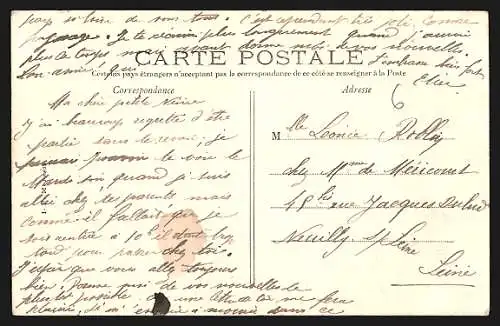 pays si loin de vous tous. C'est cependant très joli comme
paysage. Je t'écrirai plus longuement quand j'aurai
plus le temps mais avant donne moi de vos nouvelles.
Ton amie qui t'embrasse bien fort
CARTE POSTALE
Certains pays étrangers n'acceptent pas la correspondance de ce côté se renseigner à la Poste
Correspondance
Adresse
6
Ma chère petite
J'ai beaucoup regretté d'être
partie sans te revoir, je
pensais pouvoir le voir le
Mardi soir, quand je suis
allée chez tes parents mais
comme il fallait que je
sois rentrée à 10h il était trop
tard pour passer chez toi.
J'espère que vous allez toujours
bien. Donne moi de vos nouvelles le
plus tôt possible une lettre de toi me fera
plaisir, je m'ennuie à mourir dans ce
Mlle Léonie
chez Mme de Méricourt
48 bis rue Jacques Dulud
Neuilly s/ Seine
Seine